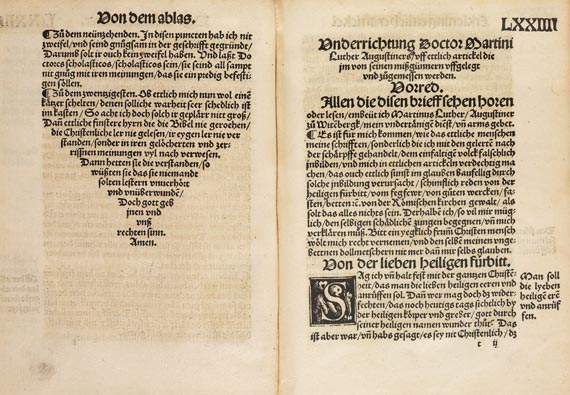 Von dem ablas.
¶ Zů dem neünzehenden. In disen puncten hab ich nit
zweifel/ vnd seind gnůgsam in der geschrifft gegründe/
Darumb solt ir ouch kein zweifel haben. Vnd laßt Do
ctores scholasticos/ scholasticos sein/ sie seind all sampt
nit gnůg mit iren meinungen/ das sie ein predig befesti-
gen söllen.
¶ Zů dem zwentzigesten. Ob ettlich mich nun wol eine̅
kätzer schelten/ denen solliche warheit seer schedlich ist
im kasten/ So acht ich doch solch ir geplärr nitt groß/
Dan̅ ettliche finstere hyrn die die Bibel nie gerochen/
die Christenliche ler nie gelesen/ ir eygen ler nie ver
standen/ sonder in iren gelöcherten vnd zer-
rissnen meinungen vyl nach verwesen.
Dann hetten sie die verstanden/ so
wüßten sie das sie niemandt
solten lestern vnuerhört
vnd vnüberwunde̅/
Doch gott geb
jnen vnd
vnß
rechten sinn.
Amen.
LXXIIII
Vnderrichtung Doctor Martini
Luther Augustiners/ vff ettlich artickel die
jm von seinen mißgünnern vffgelegt
vnd zůgemessen werden.
Vorred.
Allen die disen brieff sehen hören
oder lesen/ embeüt ich Martinus Luther/ Augustiner
zů Witeberg/ mein vndertänige dienst/ vn̅ arms gebet.
¶ Es ist für mich kommen/ wie das ettliche menschen
meine schrifften/ sonderlich die ich mit den gelerte̅ nach
der schärpffe gehandelt/ dem einfaltige̅ volck fälschlich
jnbilden/ vnd mich in ettlichen artickeln verdechtig ma
chen/ das ouch ettliche sunst im glauben baufellig durch
solche jnbildung verursacht/ schimflich reden von der
heiligen fürbitt/ vom fegfewr/ von gůten wercken/ fa-
sten/ betten ꝛc. von der Römischen kirchen gewalt/ als
solt das alles nichts sein. Derhalb ich/ so vil mir müg-
lich/ den selbigen schädliche̅ zungen begegnen/ vn̅ mich
verklären můß. Bitt ein yeglich frum̅ Christen mensch
wölt mich recht vernemen/ vnd den selbe̅ meinen vnge-
bettnen dollmetschern nit mer dan̅ mir selbs glauben.
Von der lieben heiligen fürbitt.
SAg ich vn̅ halt fest mit der gantzen Christe̅-
heit/ das man die lieben heiligen eeren vnd
anrüffen sol. Dan̅ wer mag doch dz wider-
fechten/ das noch heutigs tags sichtlich by
der heiligen körper vnd greber/ gott durch
seiner heiligen namen wunder thůt. Das
ist aber war/ vn̅ habs gesagt/ es sey nit Christlich/ dz
Man soll
die lyeben
heilige̅ ere̅
vnd anrüf
fen.
t ij